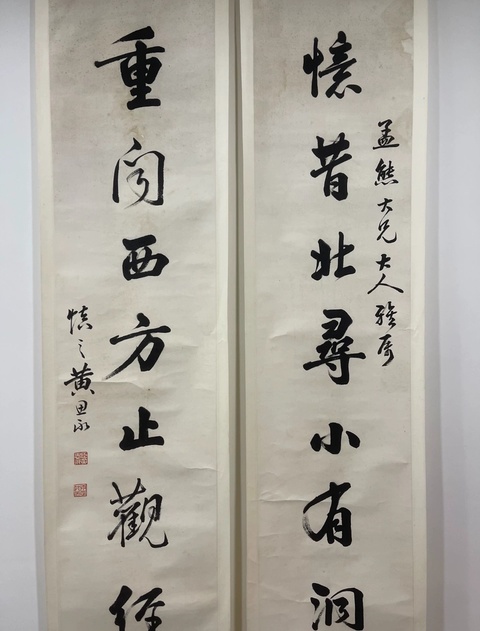 孟熊大兄大人雅属
憶昔北尋小有洞
重閱西方止觀經
慎之黄思永